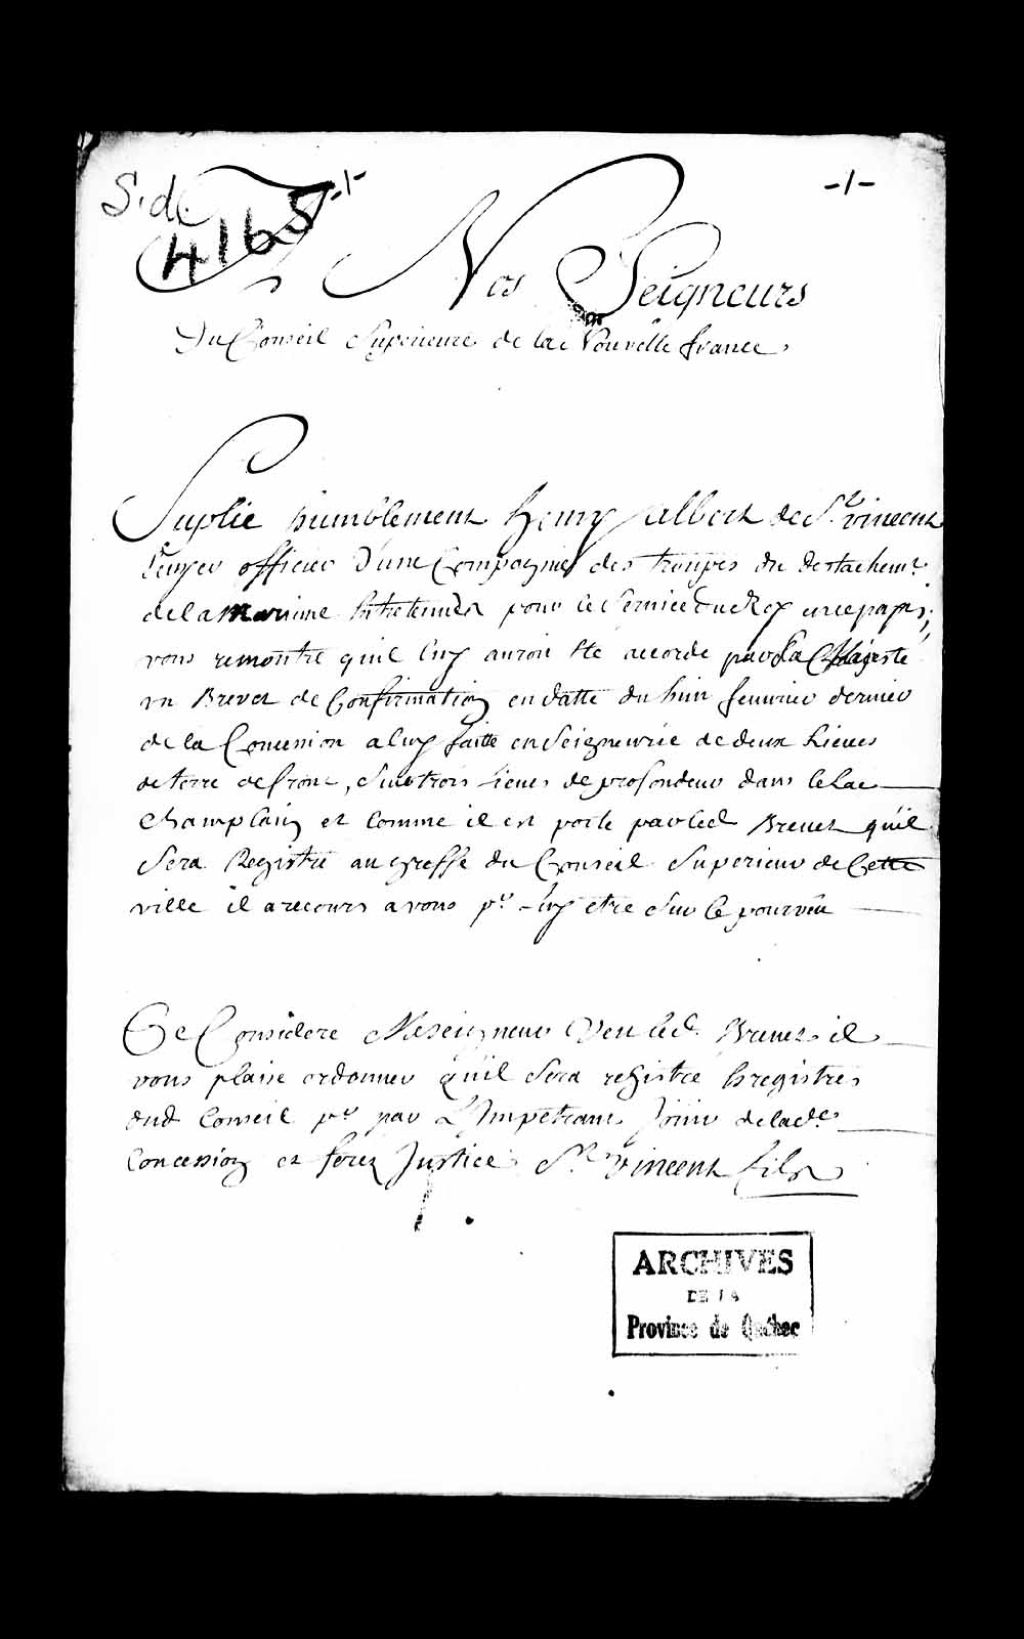 S. d.
4165
-1-
-1-
A Nos Seigneurs
Du Conseil Superieure de la Nouvelle france
Suplie humblement henry albert de St. vincent
Ecuyer officier D'une Compagnie des troupes du destachemt.
de la marinne Entretenües pour le Service du Roy en ce pays,
vous remontre quil luy auroit Eté accordé par Sa Majesté
un Brevet de Confirmation en datte du huit feuvrier dernier
de la Concession a luy faitte en Seigneurie de deux Lieues
de terre de front, Sur trois Lieues de profondeur dans le Lac
Champlain et Comme il est porté par led. Brevet qu'il
Sera Registré au greffe du Conseil Superieur de Cette
ville il a recours a vous pr. Luy etre Sur Ce pourvûu
Ce Considere Nosseigneurs Veu led. Brevet il
vous plaise ordonner qu'il Sera registré Es registres
dud. Conseil pr. par L'Impetrant Jouir de lad.
Concession et ferez Justice. St. vincent fils
ARCHIVES
DE LA
Province de Québec